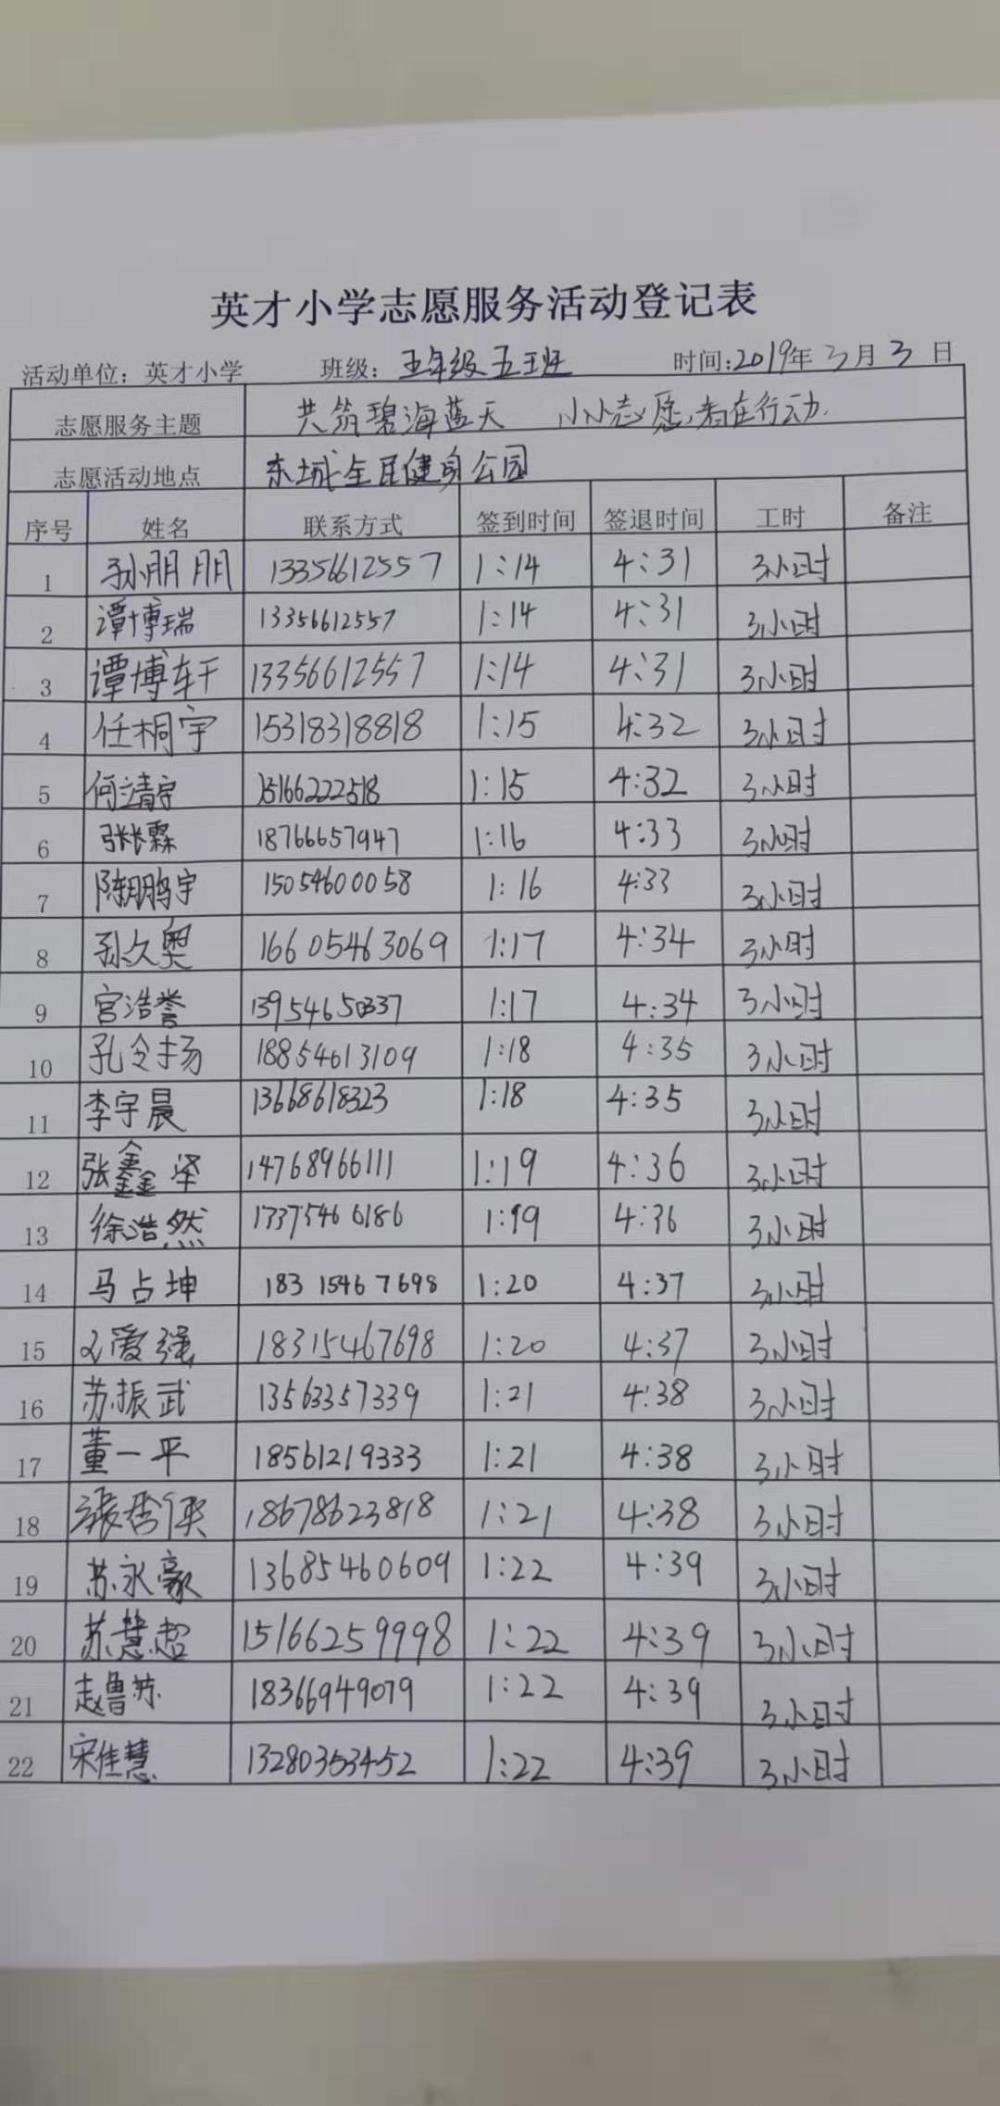 英才小学志愿服务活动登记表
活动单位：英才小学 班级：五年级五班 时间:2019年3月3日
志愿服务主题 共筑碧海蓝天 小小志愿者在行动.
志愿活动地点 东城全民健身公园
序号 姓名 联系方式 签到时间 签退时间 工时 备注
1 孙朋朋 13356612557 1:14 4:31 3小时
2 谭博瑞 13356612557 1:14 4:31 3小时
3 谭博轩 13356612557 1:14 4:31 3小时
4 任桐宇 15318318818 1:15 4:32 3小时
5 何靖宇 15166222518 1:15 4:32 3小时
6 张长霖 18766657947 1:16 4:33 3小时
7 陈鹏宇 15054600058 1:16 4:33 3小时
8 孙久奥 16605463069 1:17 4:34 3小时
9 宫浩誉 13954650337 1:17 4:34 3小时
10 孔令扬 18854613109 1:18 4:35 3小时
11 李宇晨 13668618323 1:18 4:35 3小时
12 张鑫泽 14768966111 1:19 4:36 3小时
13 徐浩然 17375466186 1:19 4:36 3小时
14 马占坤 18315467698 1:20 4:37 3小时
15 爱强 18315467698 1:20 4:37 3小时
16 苏振武 13563357339 1:21 4:38 3小时
17 董一平 18561219333 1:21 4:38 3小时
18 张 18678623818 1:21 4:38 3小时
19 苏永豪 13685460609 1:22 4:39 3小时
20 苏慧超 15166259998 1:22 4:39 3小时
21 赵鲁苏 18366949079 1:22 4:39 3小时
22 宋佳慧 13280353452 1:22 4:39 3小时